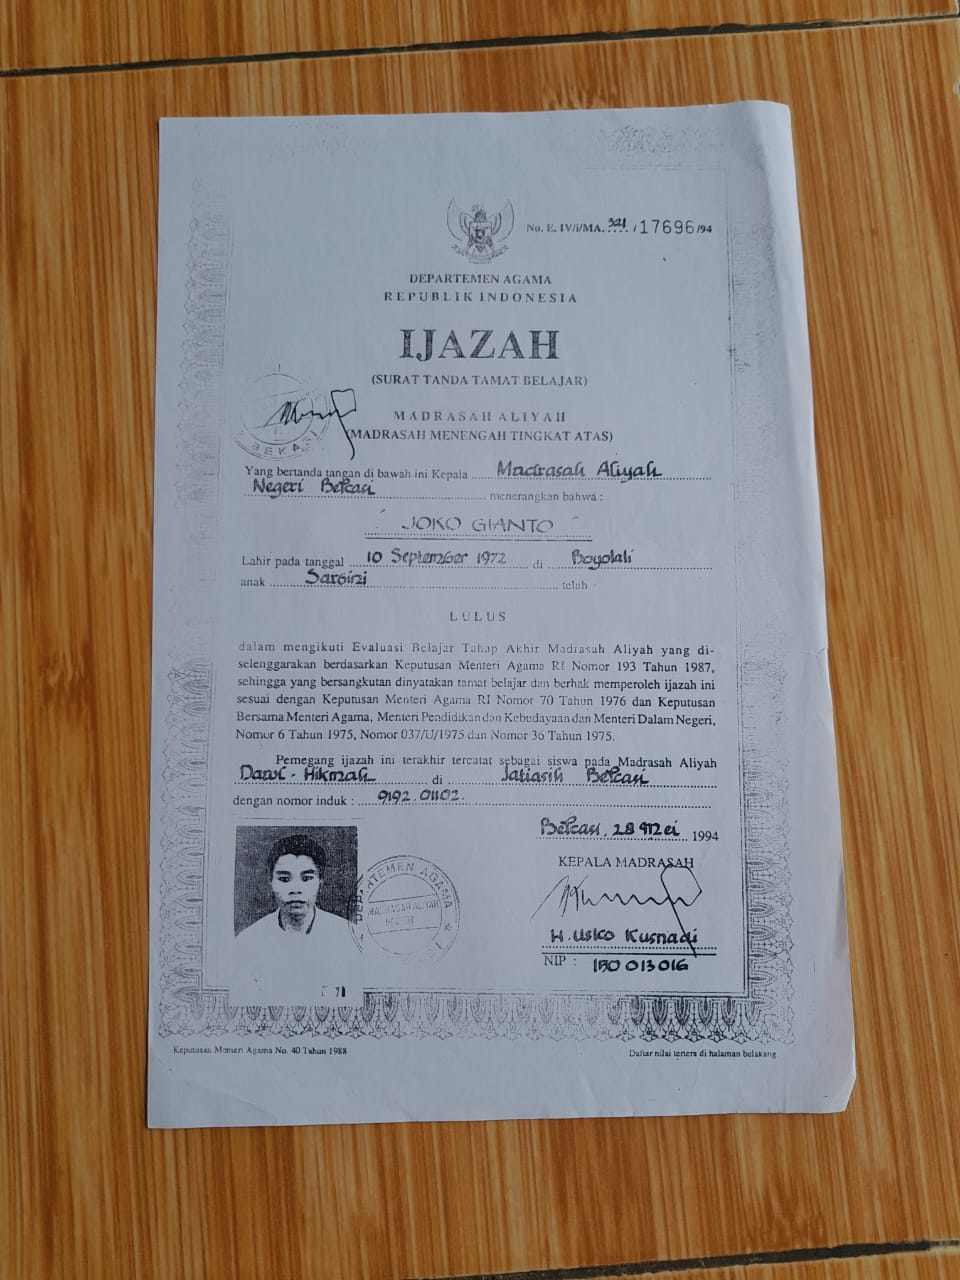 No. E. IV/i/MA. 321 /17696/94
DEPARTEMEN AGAMA
REPUBLIK INDONESIA
IJAZAH
(SURAT TANDA TAMAT BELAJAR)
BEKASI
MADRASAH ALIYAH
(MADRASAH MENENGAH TINGKAT ATAS)
Yang bertanda tangan di bawah ini Kepala Madrasah Aliyah
Negeri Bekasi menerangkan bahwa :
JOKO GIANTO
Lahir pada tanggal 10 September 1972 di Boyolali
anak telah
LULUS
dalam mengikuti Evaluasi Belajar Tahap Akhir Madrasah Aliyah yang di-
selenggarakan berdasarkan Keputusan Menteri Agama RI Nomor 193 Tahun 1987,
sehingga yang bersangkutan dinyatakan tamat belajar dan berhak memperoleh ijazah ini
sesuai dengan Keputusan Menteri Agama RI Nomor 70 Tahun 1976 dan Keputusan
Bersama Menteri Agama, Menteri Pendidikan dan Kebudayaan dan Menteri Dalam Negeri,
Nomor 6 Tahun 1975, Nomor 037/U/1975 dan Nomor 36 Tahun 1975.
Pemegang ijazah ini terakhir tercatat sebagai siswa pada Madrasah Aliyah
Darul - Hikmah di Jatiasih Bekasi
dengan nomor induk : 9192.01102.
Bekasi, 28 Mei 1994
KEPALA MADRASAH
DEPARTEMEN AGAMA
MADRASAH ALIYAH
NEGERI
H. Usko Kusnadi
NIP : 150 013 016
Keputusan Menteri Agama No. 40 Tahun 1988
Daftar nilai tertera di halaman belakang